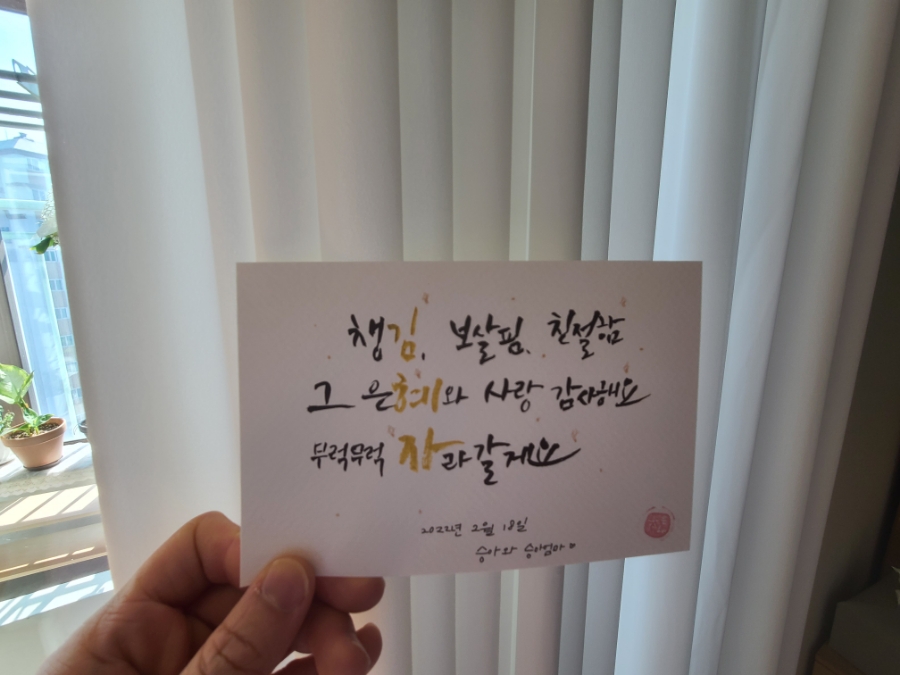 챙김, 보살핌, 친절함
그 은혜와 사랑 감사해요
무럭무럭 자라갈게요
2022년 2월 18일
승아와 승아엄마♥